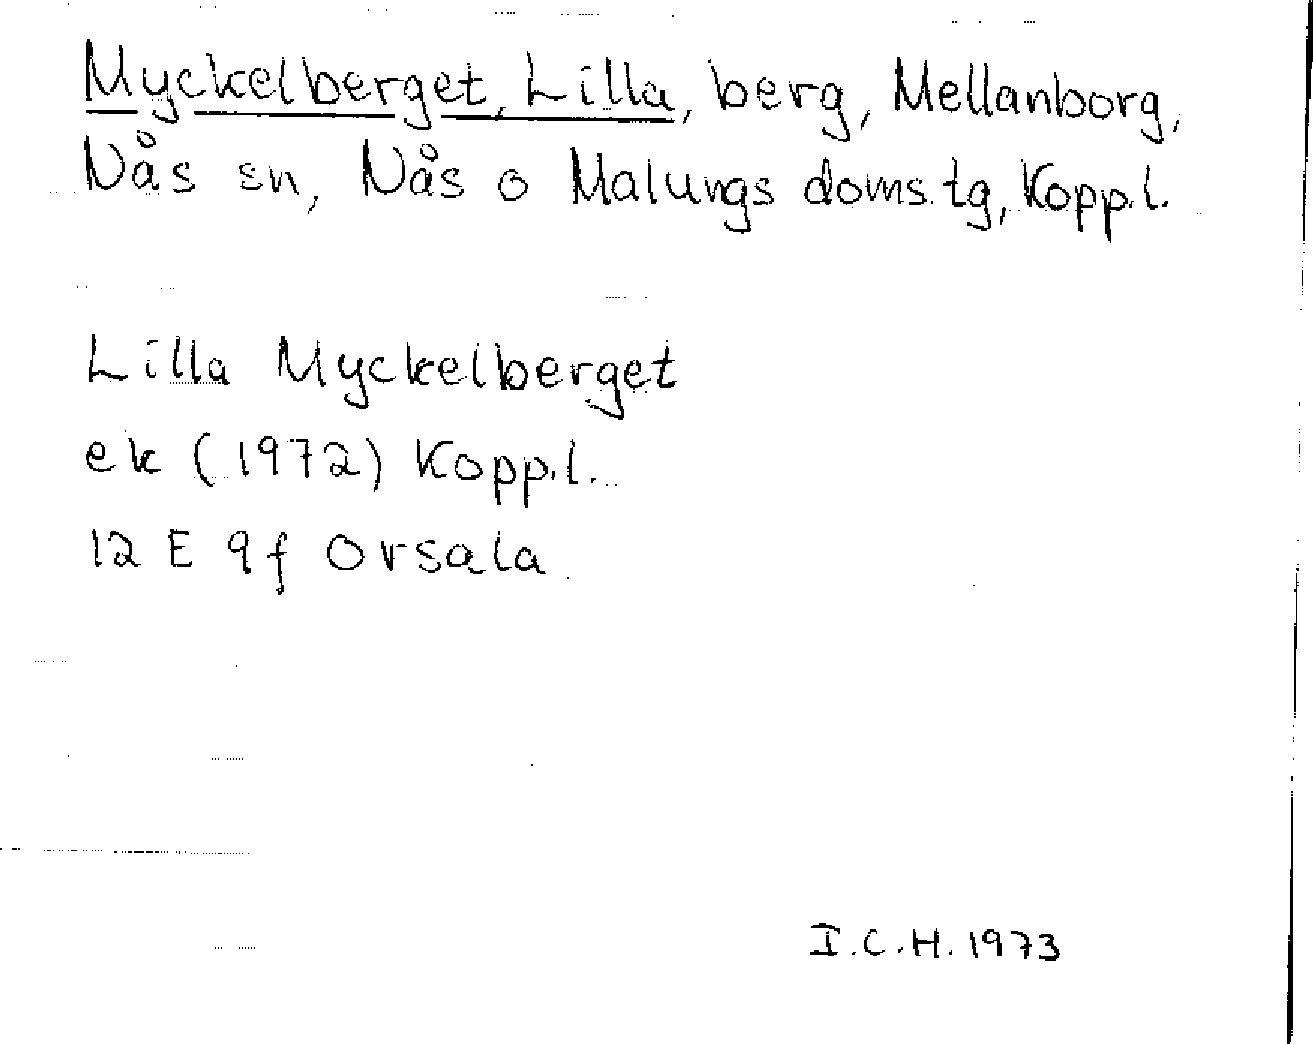 Myckelberget, Lilla, berg, Mellanborg,
Nås sn, Nås o Malungs doms.tg, Kopp.l.
Lilla Myckelberget
ek (1972) Kopp.l.
12 E 9f Orsala
I.C.H. 1973